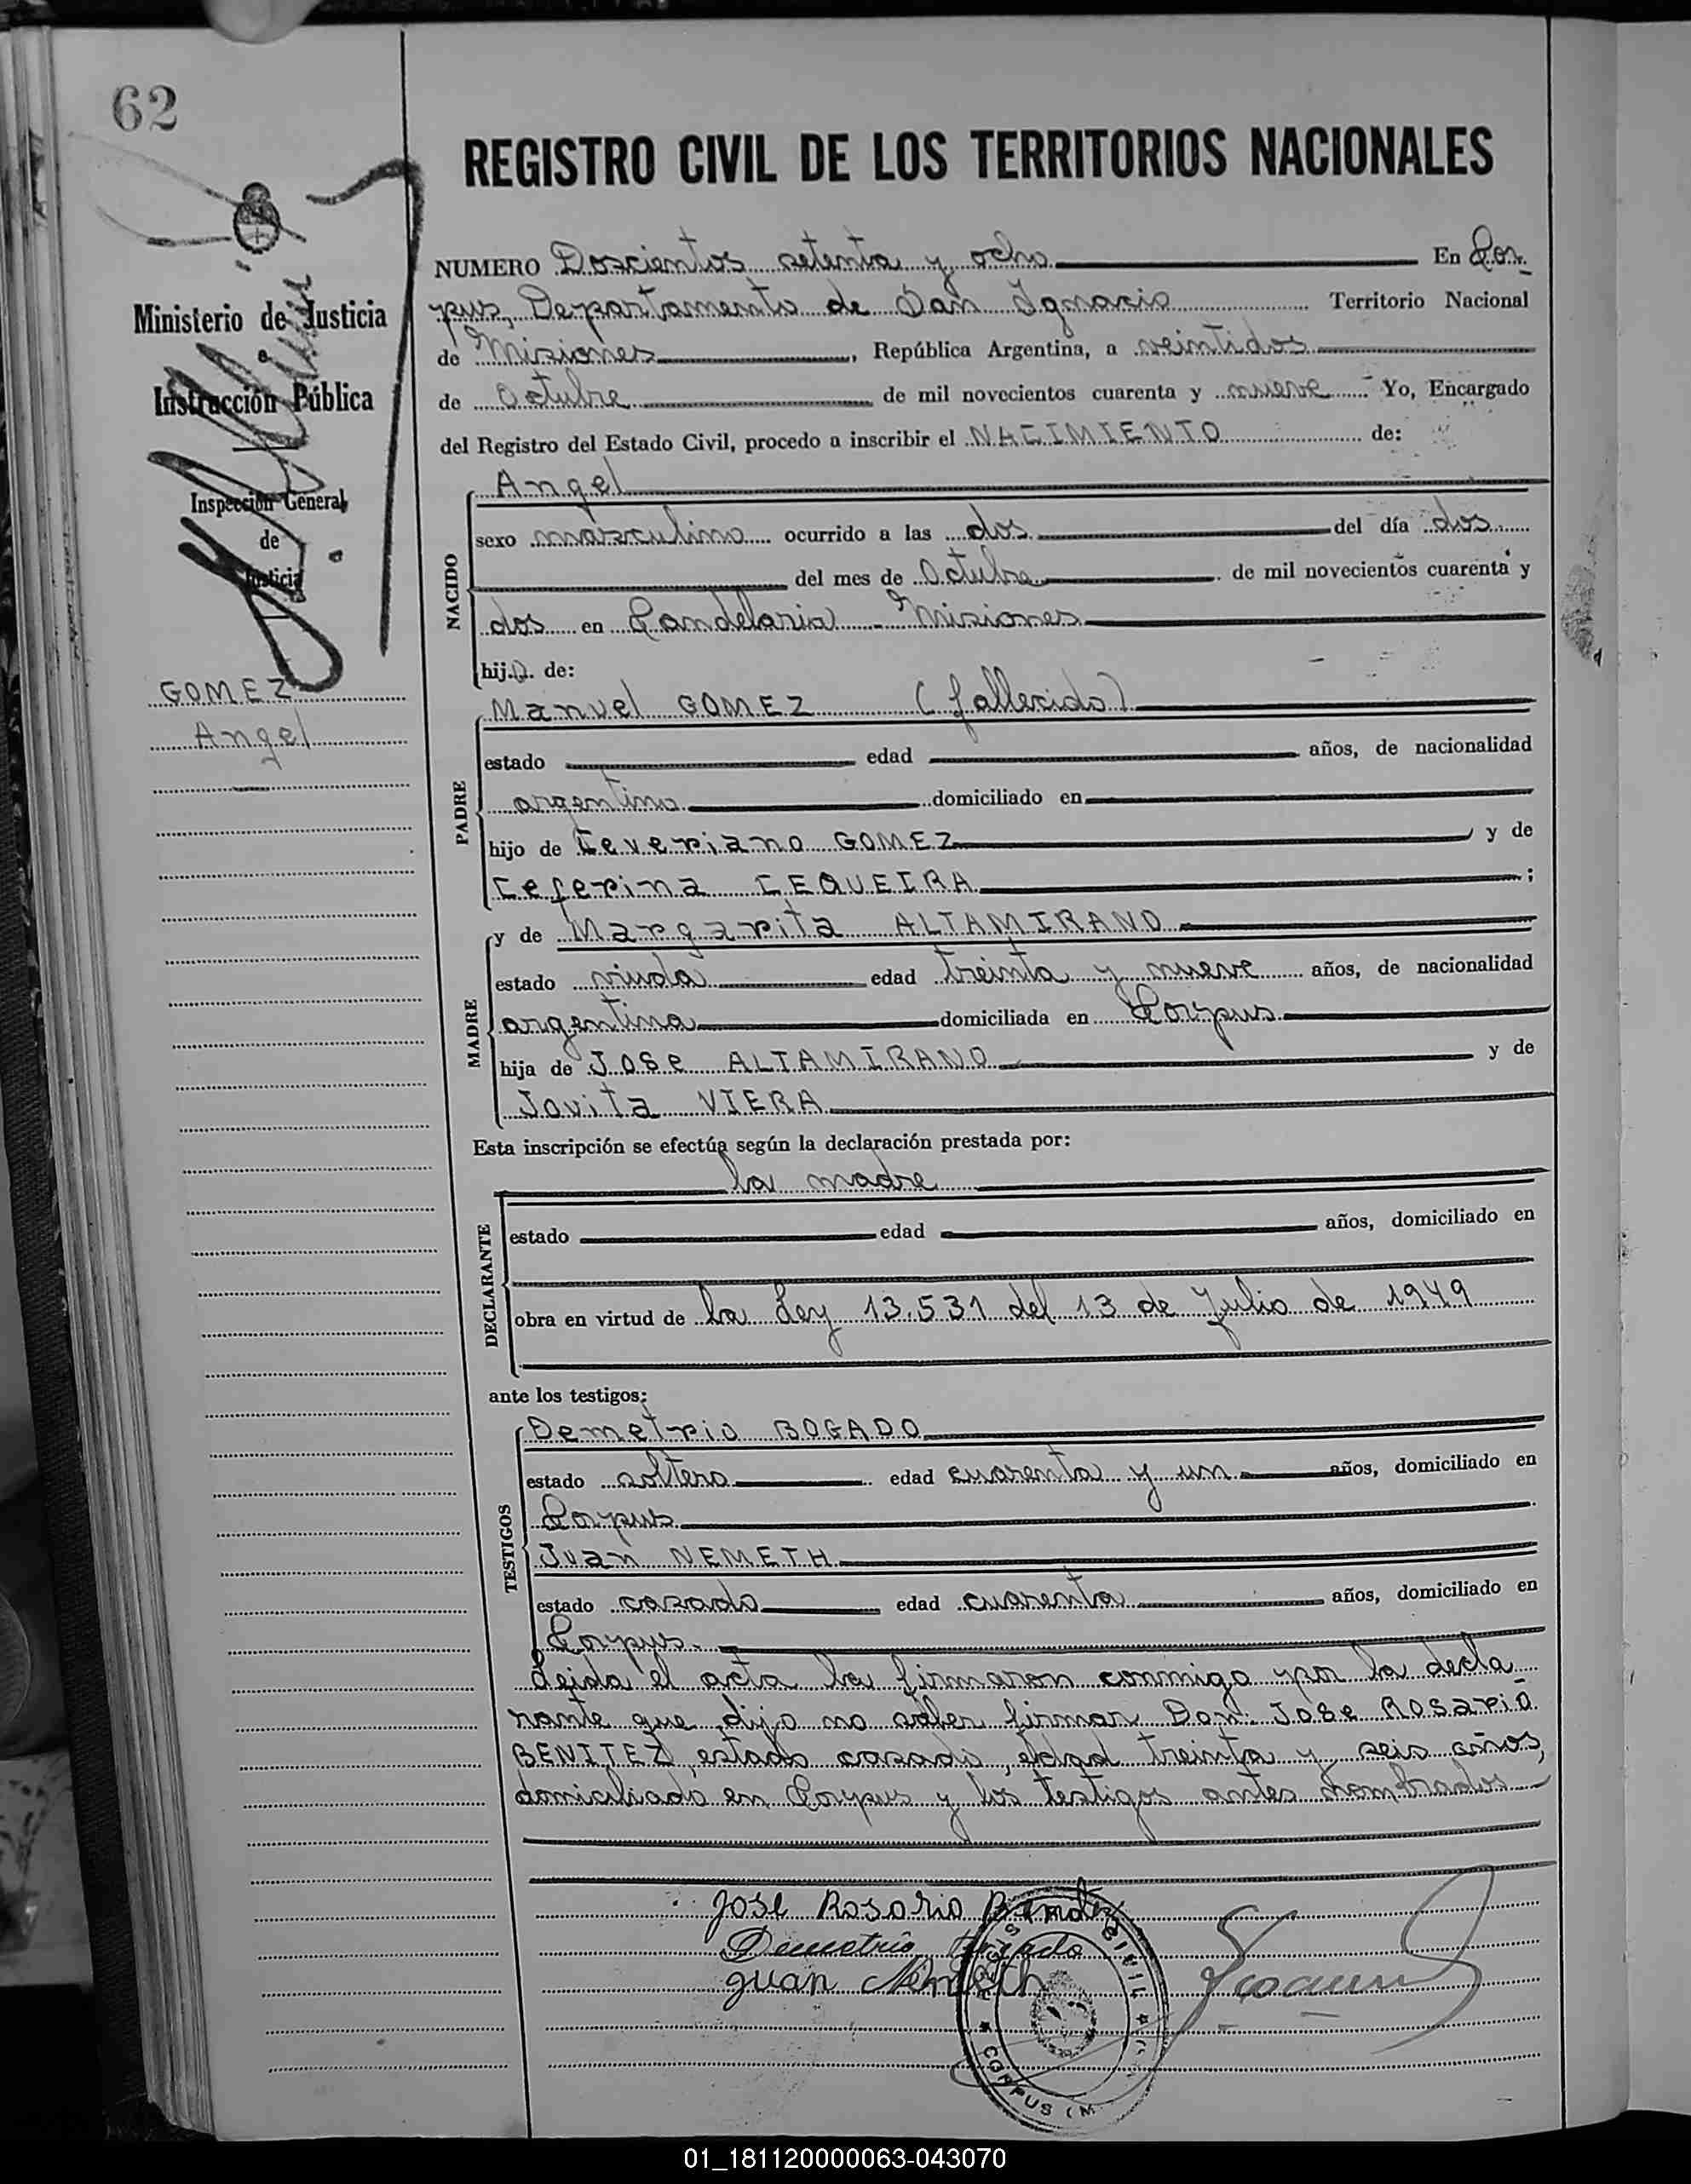 62
REGISTRO CIVIL DE LOS TERRITORIOS NACIONALES
Ministerio de Justicia
e
Instrucción Pública
Inspección General
de
Justicia
GOMEZ
Angel
NUMERO Doscientos setenta y ocho En Cor-
pus, Departamento de San Ignacio Territorio Nacional
de Misiones, República Argentina, a veintidos
de Octubre de mil novecientos cuarenta y nueve Yo, Encargado
del Registro del Estado Civil, procedo a inscribir el NACIMIENTO de:
NACIDO
Angel
sexo masculino ocurrido a las dos del día dos
del mes de Octubre de mil novecientos cuarenta y
dos en Candelaria - Misiones
hijo de:
PADRE
Manuel GOMEZ (fallecido)
estado edad años, de nacionalidad
argentino domiciliado en
hijo de Ceveriano GOMEZ y de
Ceferina CEQUEIRA ;
MADRE
y de Margarita ALTAMIRANO
estado viuda edad treinta y nueve años, de nacionalidad
argentina domiciliada en Corpus
hija de Jose ALTAMIRANO y de
Jovita VIERA
Esta inscripción se efectúa según la declaración prestada por:
DECLARANTE
la madre
estado edad años, domiciliado en
obra en virtud de la Ley 13.531 del 13 de Julio de 1949
ante los testigos:
TESTIGOS
Demetrio BOGADO
estado soltero edad cuarenta y un años, domiciliado en
Corpus
Juan NEMETH
estado casado edad cuarenta años, domiciliado en
Corpus.
Leida el acta la firmaron conmigo por la decla
rante que dijo no saber firmar Don: Jose Rosario
BENITEZ, estado casado, edad treinta y seis años,
domiciliado en Corpus y los testigos antes nombrados
Jose Rosario Benitez
Demetrio Bogado
Juan Nemeth
REGISTRO CIVIL
CORPUS (M
01_181120000063-043070